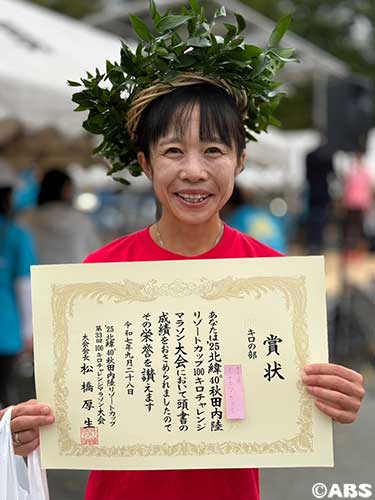 賞状
キロの部
あなたは'25北緯40°秋田内陸
リゾートカップ100キロチャレンジ
マラソン大会において頭書の
成績をおさめられましたので
その栄誉を讃えます
令和七年九月二十八日
'25北緯40°秋田内陸リゾートカップ
第33回100キロチャレンジマラソン大会
大会会長 松橋厚生
©ABS